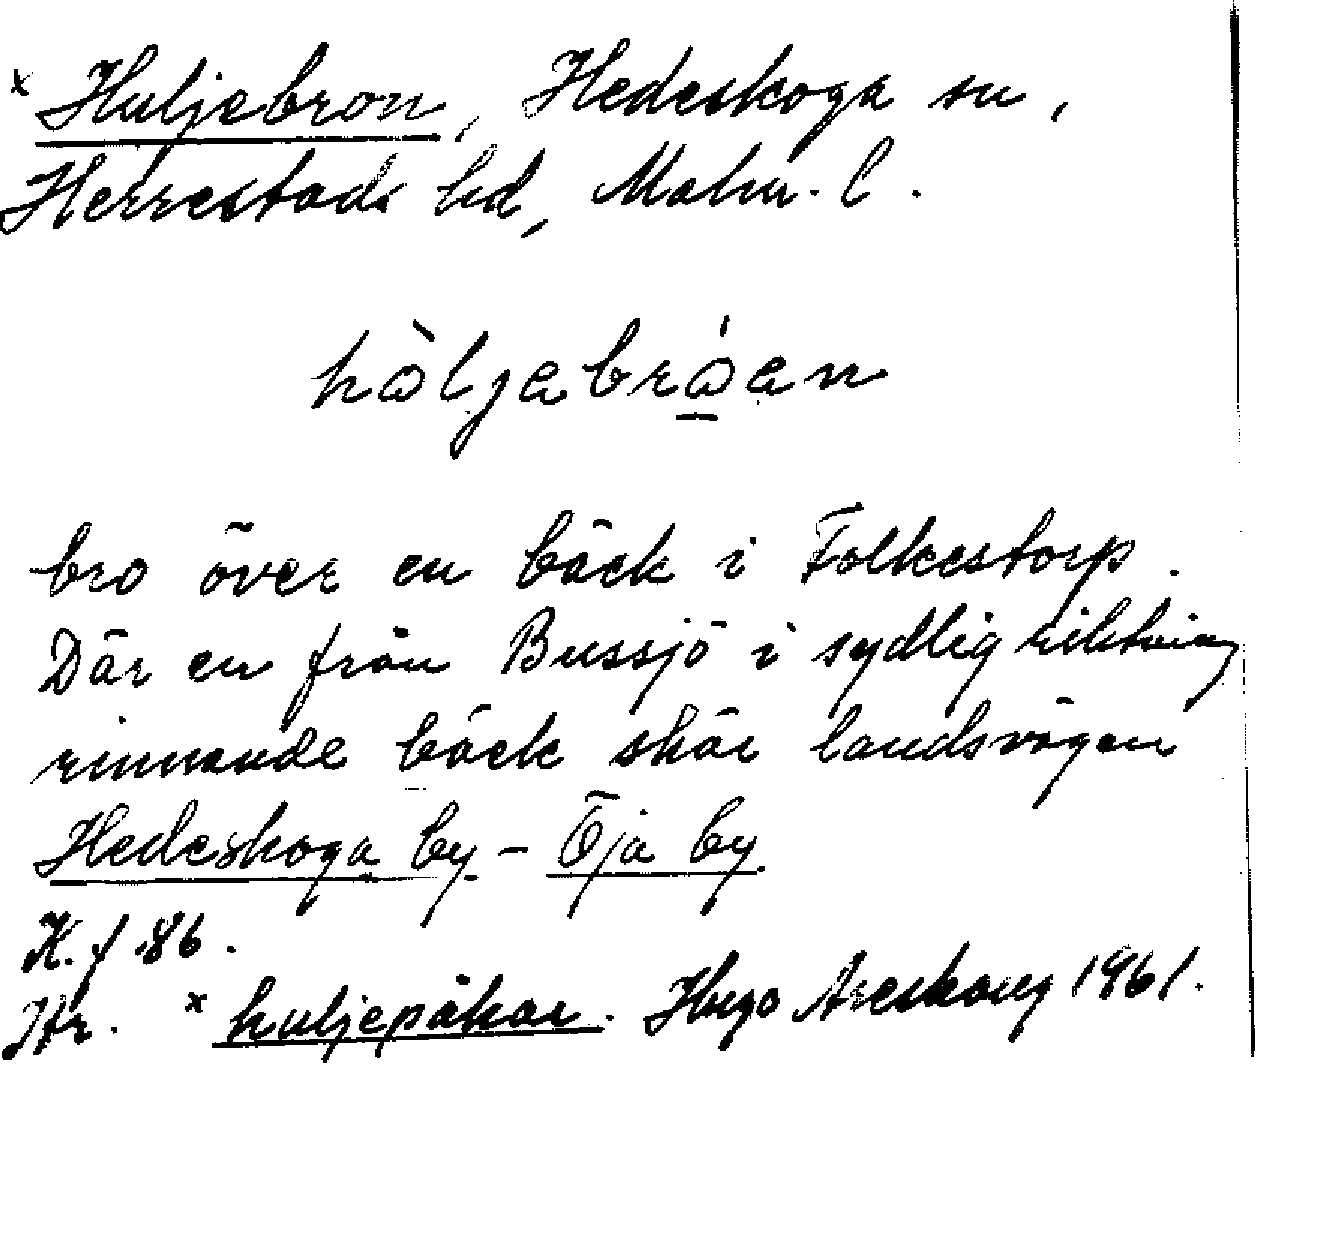 x Huljebron, Hedeskoga sn,
Herrestads hd, Malm. l.
hòljebróen
bro över en bäck i Folkestorp.
Där en från Bussjö i sydlig riktning
rinnande bäck skär landsvägen
Hedeskoga by - Öja by
K. f 86.
Jfr. x huljepåkar. Hugo Areskoug 1961.